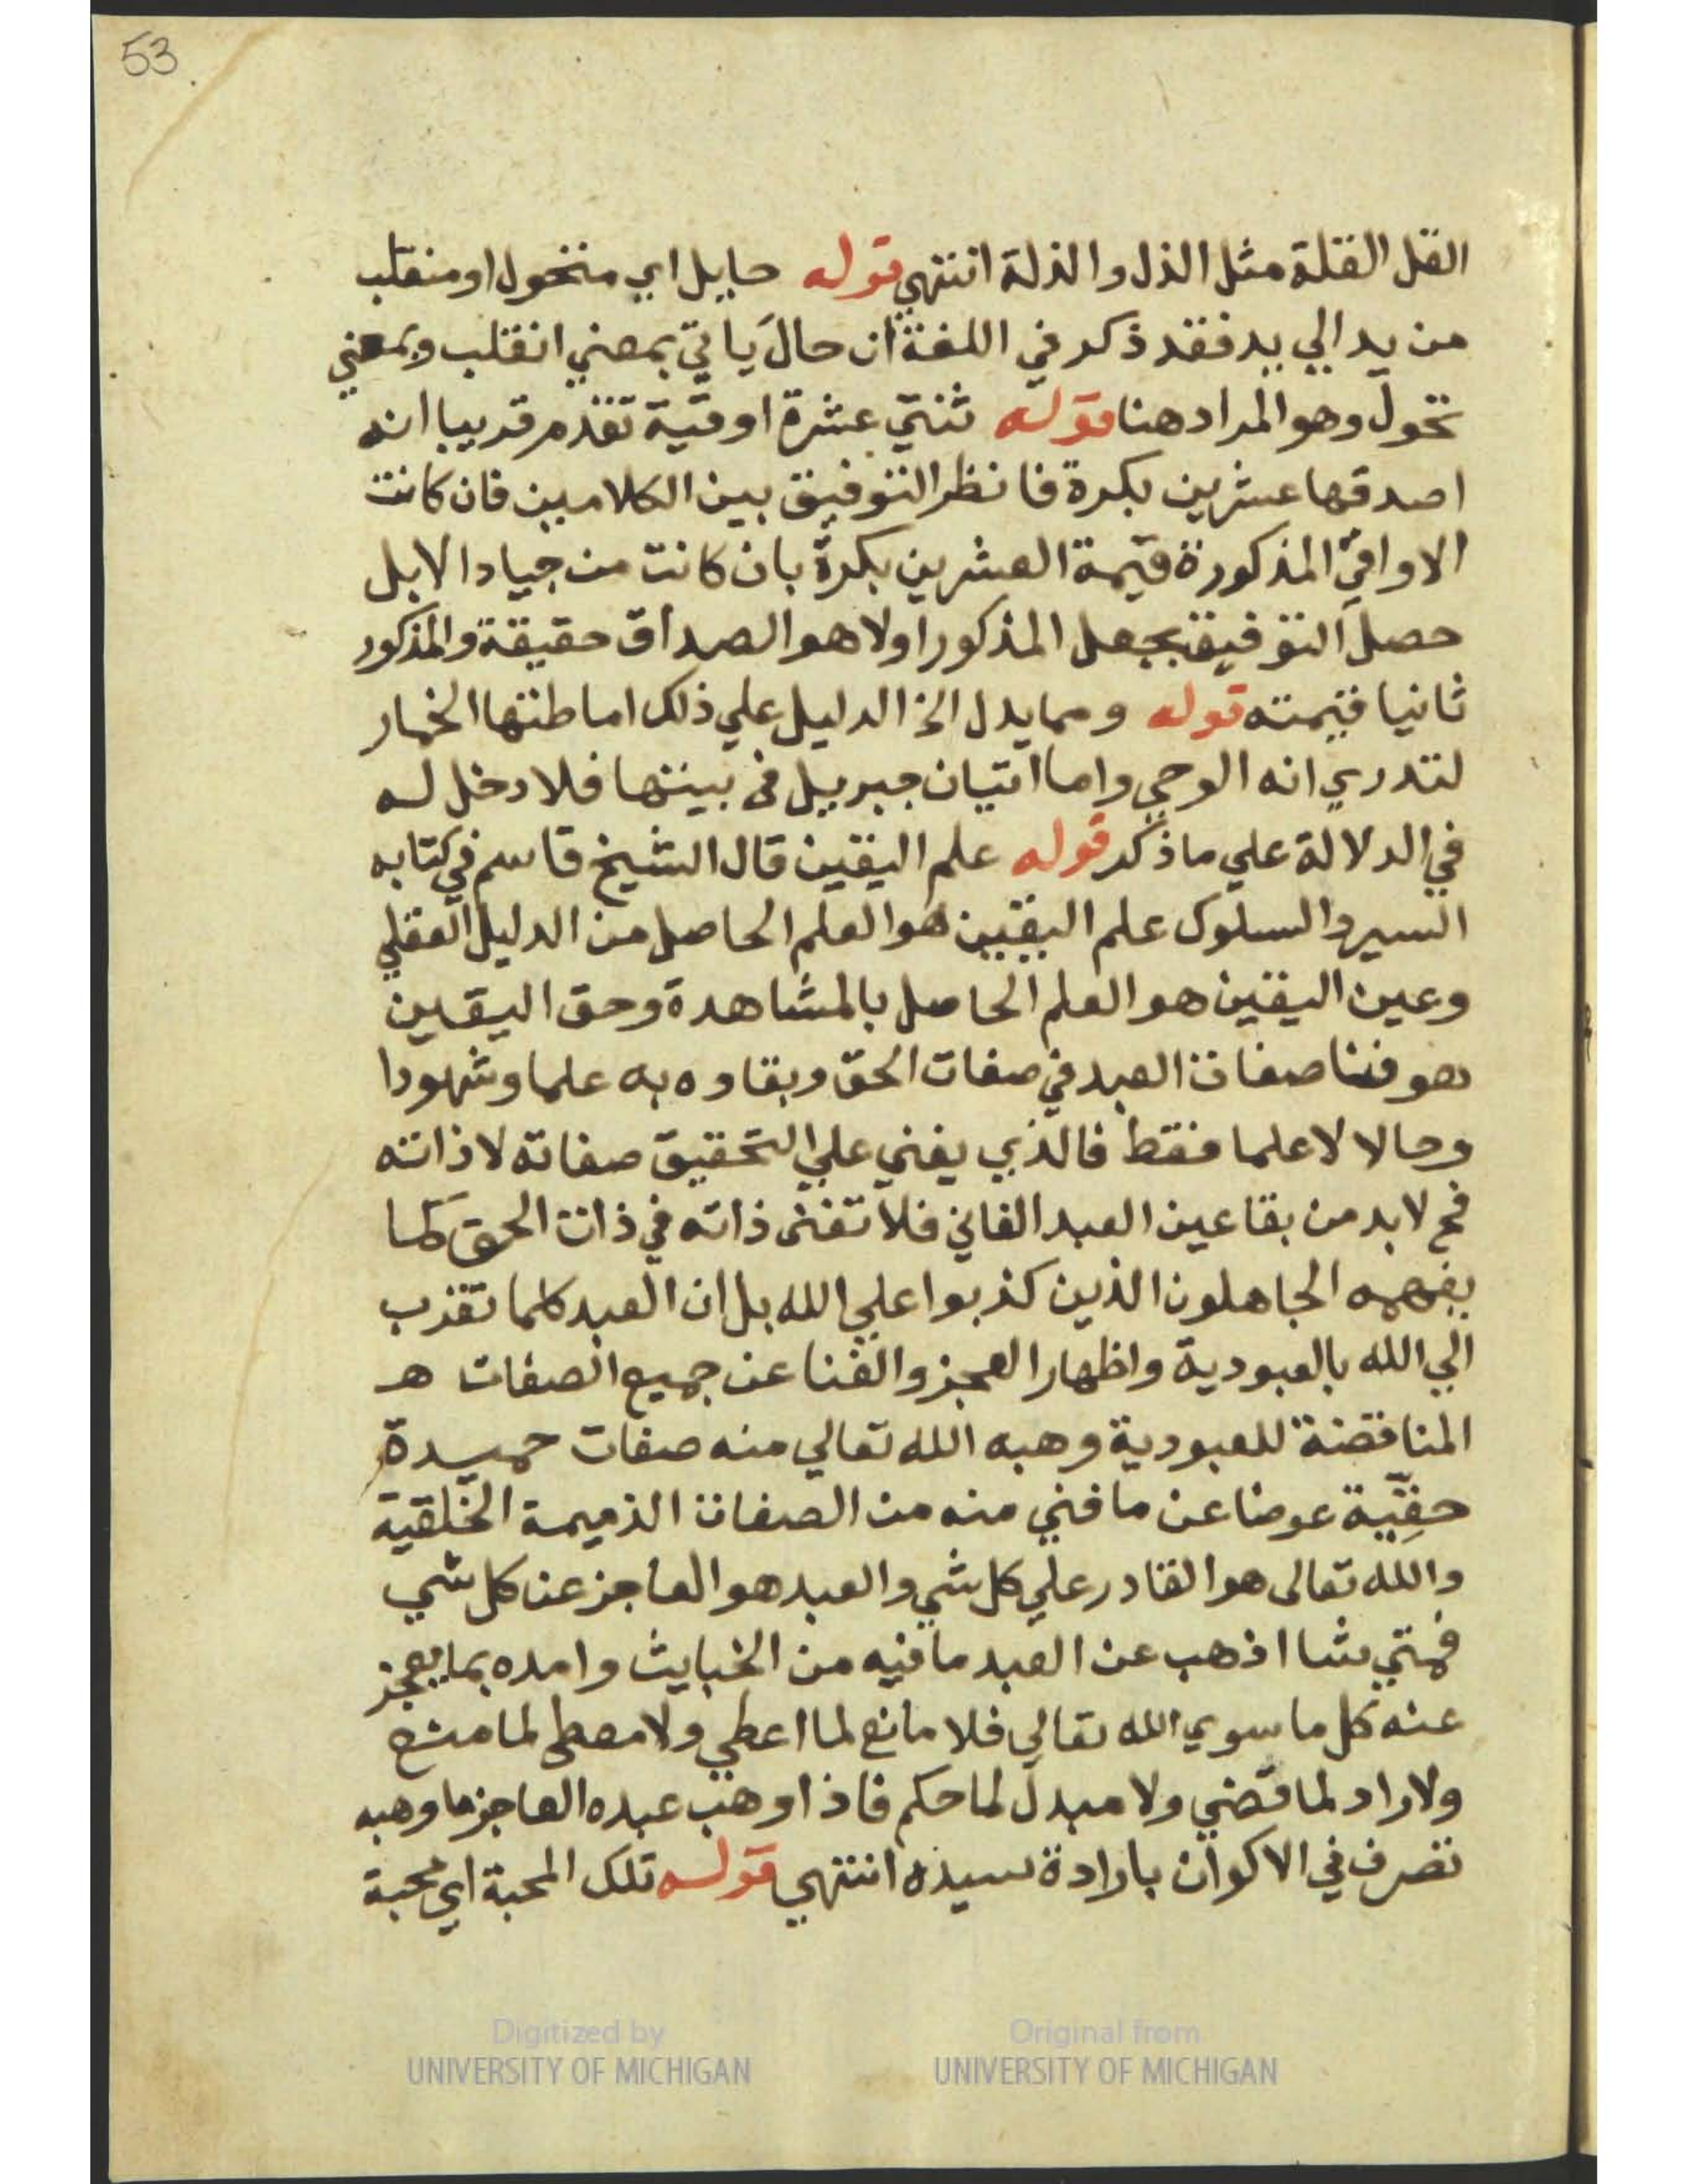 53
القل القلة مثل الذل والذلة انتهي قوله حايل اي متحول او منقلب
من يد الي يد فقد ذكر في اللغة ان حال ياتي بمعني انقلب وبمعني
تحول وهو المراد هنا قوله ثنتي عشرة اوقية تقدم قريبا انه
اصدقها عشرين بكرة فانظر التوفيق بين الكلامين فان كانت
الاواقي المذكورة قيمة العشرين بكرة بان كانت من جياد الابل
حصل التوفيق بجعل المذكور اولا هو الصداق حقيقة والمذكور
ثانيا قيمته قوله ومما يدل الخ الدليل علي ذلك اماطتها الخمار
لتدري انه الوحي واما اتيان جبريل في بيتها فلا دخل له
في الدلالة علي ما ذكر قوله علم اليقين قال الشيخ قاسم في كتابه
السير والسلوك علم اليقين هو العلم الحاصل من الدليل العقلي
وعين اليقين هو العلم الحاصل بالمشاهدة وحق اليقين
هو فنا صفات العبد في صفات الحق وبقاوه به علما وشهودا
وحالا لا علما فقط فالذي يفني علي التحقيق صفاته لا ذاته
فح لا بد من بقا عين العبد الفاني فلا تفنى ذاته في ذات الحق كما
يفهمه الجاهلون الذين كذبوا علي الله بل ان العبد كلما تقرب
الي الله بالعبودية واظهار العجز والفنا عن جميع الصفات هـ
المناقضة للعبودية وهبه الله تعالي منه صفات حميدة
حقية عوضا عن ما فني منه من الصفات الذميمة الخلقية
والله تعالى هو القادر علي كل شي والعبد هو العاجز عن كل شي
فمتي شا اذهب عن العبد ما فيه من الخبايث وامده بما يعجز
عنه كل ما سوي الله تعالي فلا مانع لما اعطي ولا معطى لما منع
ولا راد لما قضي ولا مبدل لما حكم فاذا وهب عبده العاجز ما وهبه
تصرف في الاكوان بارادة سيده انتهي قوله تلك المحبة اي محبة
Digitized by
UNIVERSITY OF MICHIGAN
Original from
UNIVERSITY OF MICHIGAN